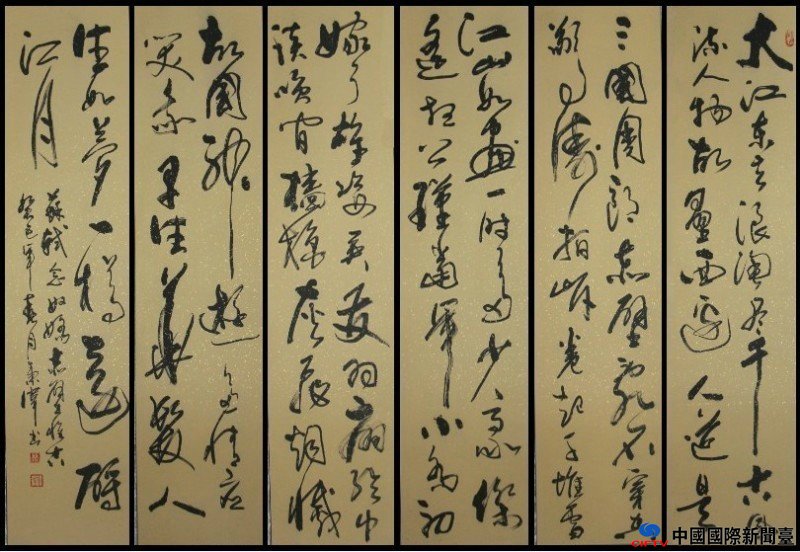 大江東去浪淘尽千古風
流人物故壘西邊人道是
三國周郎赤壁亂石穿空
驚濤拍岸卷起千堆雪
江山如畫一時多少豪傑
遙想公瑾當年小喬初
嫁了雄姿英發羽扇綸巾
談笑間檣櫓灰飛烟滅
故國神遊多情應
笑我早生華髮人
生如夢一樽還酹
江月
蘇軾念奴嬌赤壁懷古
癸巳年春月書
中國國際新聞臺